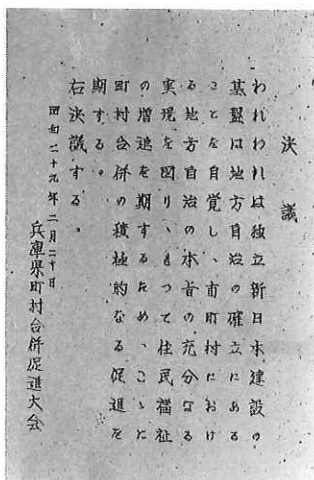 決議
われわれは独立新日本建設の
基盤は地方自治の確立にある
ことを自覚し、市町村におけ
る地方自治の本旨の充分なる
実現を図り、もつて住民福祉
の増進を期するため、こゝに
町村合併の積極的なる促進を
期する。
右決議する。
昭和二十九年二月二十日
兵庫県町村合併促進大会